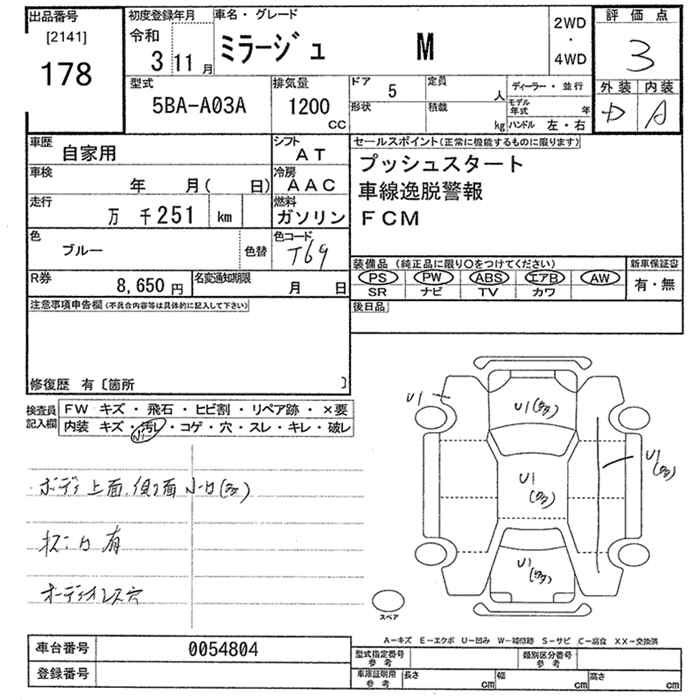 出品番号
[2141]
178
初度登録年月
令和
3 11月
車名・グレード
ミラージュ M
2WD
・
4WD
評価点
3
外装 内装
D A
型式
5BA-A03A
排気量
1200
CC
ドア 5
形状
定員 人
積載 kg
ディーラー・並行
モデル年式 年
ハンドル 左・右
車歴
自家用
シフト
AT
車検
年 月( 日)
冷房
AAC
走行
万 千251 km
燃料
ガソリン
色
ブルー
色替
色コード
T69
R券
8,650円
名変期限
月 日
セールスポイント(正常に機能するものに限ります)
プッシュスタート
車線逸脱警報
FCM
装備品(純正品に限り○をつけてください)
PS PW ABS エアB AW
SR ナビ TV カワ
新車保証書
有・無
後日品
注意事項申告欄(不具合内容等は具体的に記入して下さい)
修復歴 有〔箇所 〕
検査員
記入欄
FW キズ・飛石・ヒビ割・リペア跡・×要
内装 キズ・汚レ・コゲ・穴・スレ・キレ・破レ
小
ボディ上面、側面 小凹(多)
有
オーディオレス穴
U1
U1(多)
U1
(多)
U1
(多)
U1
(多)
スペア
A-キズ E-エクボ U-凹み W-補修跡 S-サビ C-腐食 XX-交換済
車台番号
0054804
登録番号
型式指定番号
参考
類別区分番号
参考
車庫証明用
参考
長さ cm
幅 cm
高さ cm